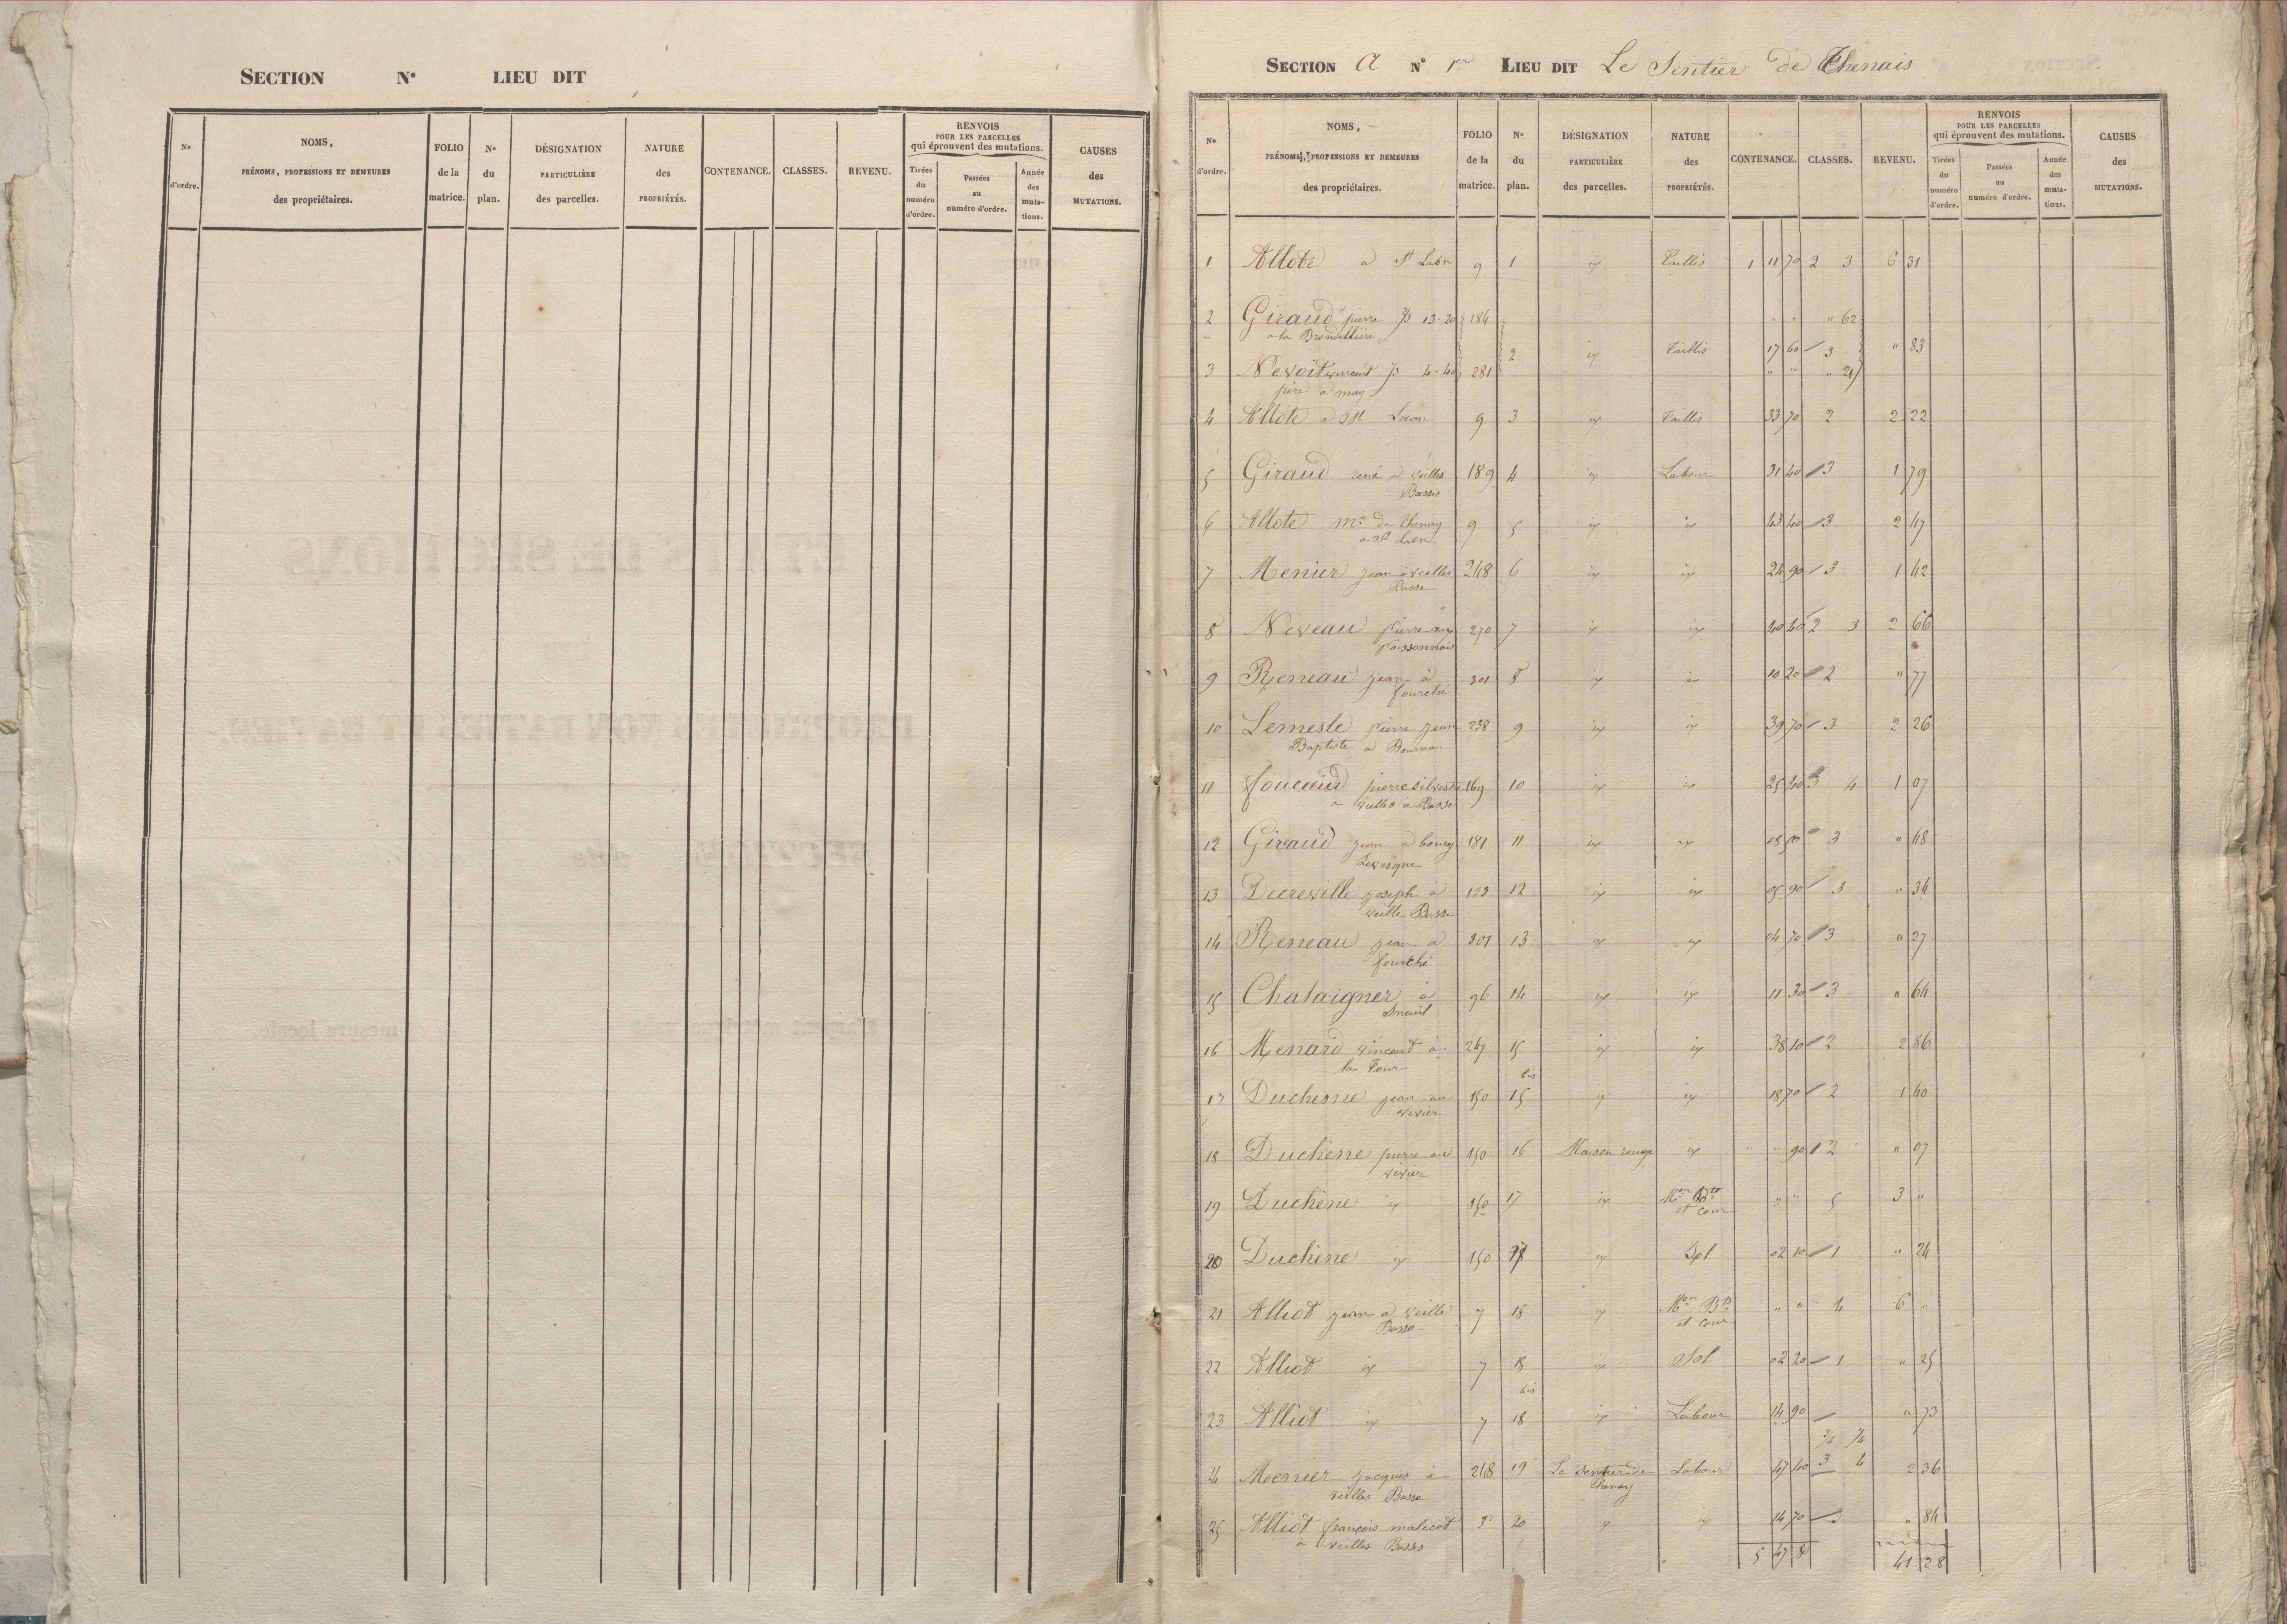 SECTION N° LIEU DIT
N° d'ordre.
NOMS, PRÉNOMS, PROFESSIONS ET DEMEURES des propriétaires.
FOLIO de la matrice.
N° du plan.
DÉSIGNATION PARTICULIÈRE des parcelles.
NATURE des PROPRIÉTÉS.
CONTENANCE.
CLASSES.
REVENU.
RENVOIS POUR LES PARCELLES qui éprouvent des mutations.
Tirées du numéro d'ordre.
Passées au numéro d'ordre.
Année des mutations.
CAUSES des MUTATIONS.
SECTION A N° 1er LIEU DIT Le Sentier de Thenais
N° d'ordre.
NOMS, PRÉNOMS, PROFESSIONS ET DEMEURES des propriétaires.
FOLIO de la matrice.
N° du plan.
DÉSIGNATION PARTICULIÈRE des parcelles.
NATURE des PROPRIÉTÉS.
CONTENANCE.
CLASSES.
REVENU.
RENVOIS POUR LES PARCELLES qui éprouvent des mutations.
Tirées du numéro d'ordre.
Passées au numéro d'ordre.
Année des mutations.
CAUSES des MUTATIONS.
1 Allote a St 9 1 Taillis 1 11 70 2 3 6 31
2 Giraud pierre 13-20 184 " " " 62
a la
2 Taillis 17 60 3 " 83
3 vincent 4-40 281 " " " 21
père a
4 Allote a St 9 3 Taillis 33 70 2 2 22
5 Giraud rené a veilles 189 4 Labour 31 40 3 1 79
Basses
6 Allote de 9 5 43 40 3 2 47
a St
7 Menier jean a veilles 248 6 24 90 3 1 42
Basse
8 Neveau pierre au 270 7 40 40 2 3 2 66
9 Reneau jean à 301 8 10 20 2 " 77
fourché
10 Lemesle pierre jean 238 9 39 70 3 2 26
Baptiste a Bournan
11 foucaud pierre silvestre 169 10 25 20 3 4 1 07
à veilles a Basse
12 Giraud jean a bourg 181 11 08 50 3 " 48
Levesque
13 Decreville joseph à 123 12 05 90 3 " 34
veille Basse
14 Reneau jean à 301 13 04 70 3 " 27
fourché
15 Chataigner à 96 14 11 30 3 " 64
16 Menard vincent à 247 15 38 10 2 2 86
la Tour
bis
17 Duchesne jean au 150 15 18 70 2 1 40
vivier
18 Duchêne pierre au 150 16 Maison rouge " " 90 2 " 07
vivier
19 Duchêne 150 17 Mon Bt " " 5 3 "
et cour
20 Duchêne 150 17 Sol 02 10 1 " 24
21 Alliot jean a veille 7 18 Mon Bt " " 4 6 "
Basse et cour
22 Alliot 7 18 Sol 02 20 1 " 25
bis
23 Alliot 7 18 Labour 14 90 " 73
24 Menier jacques à 248 19 Le Sentier de Labour 47 40 3 4 2 36
veilles Basse Thenay
25 Alliot françois 20 14 70 3 " 84
à veilles Basse
5 47 41 28